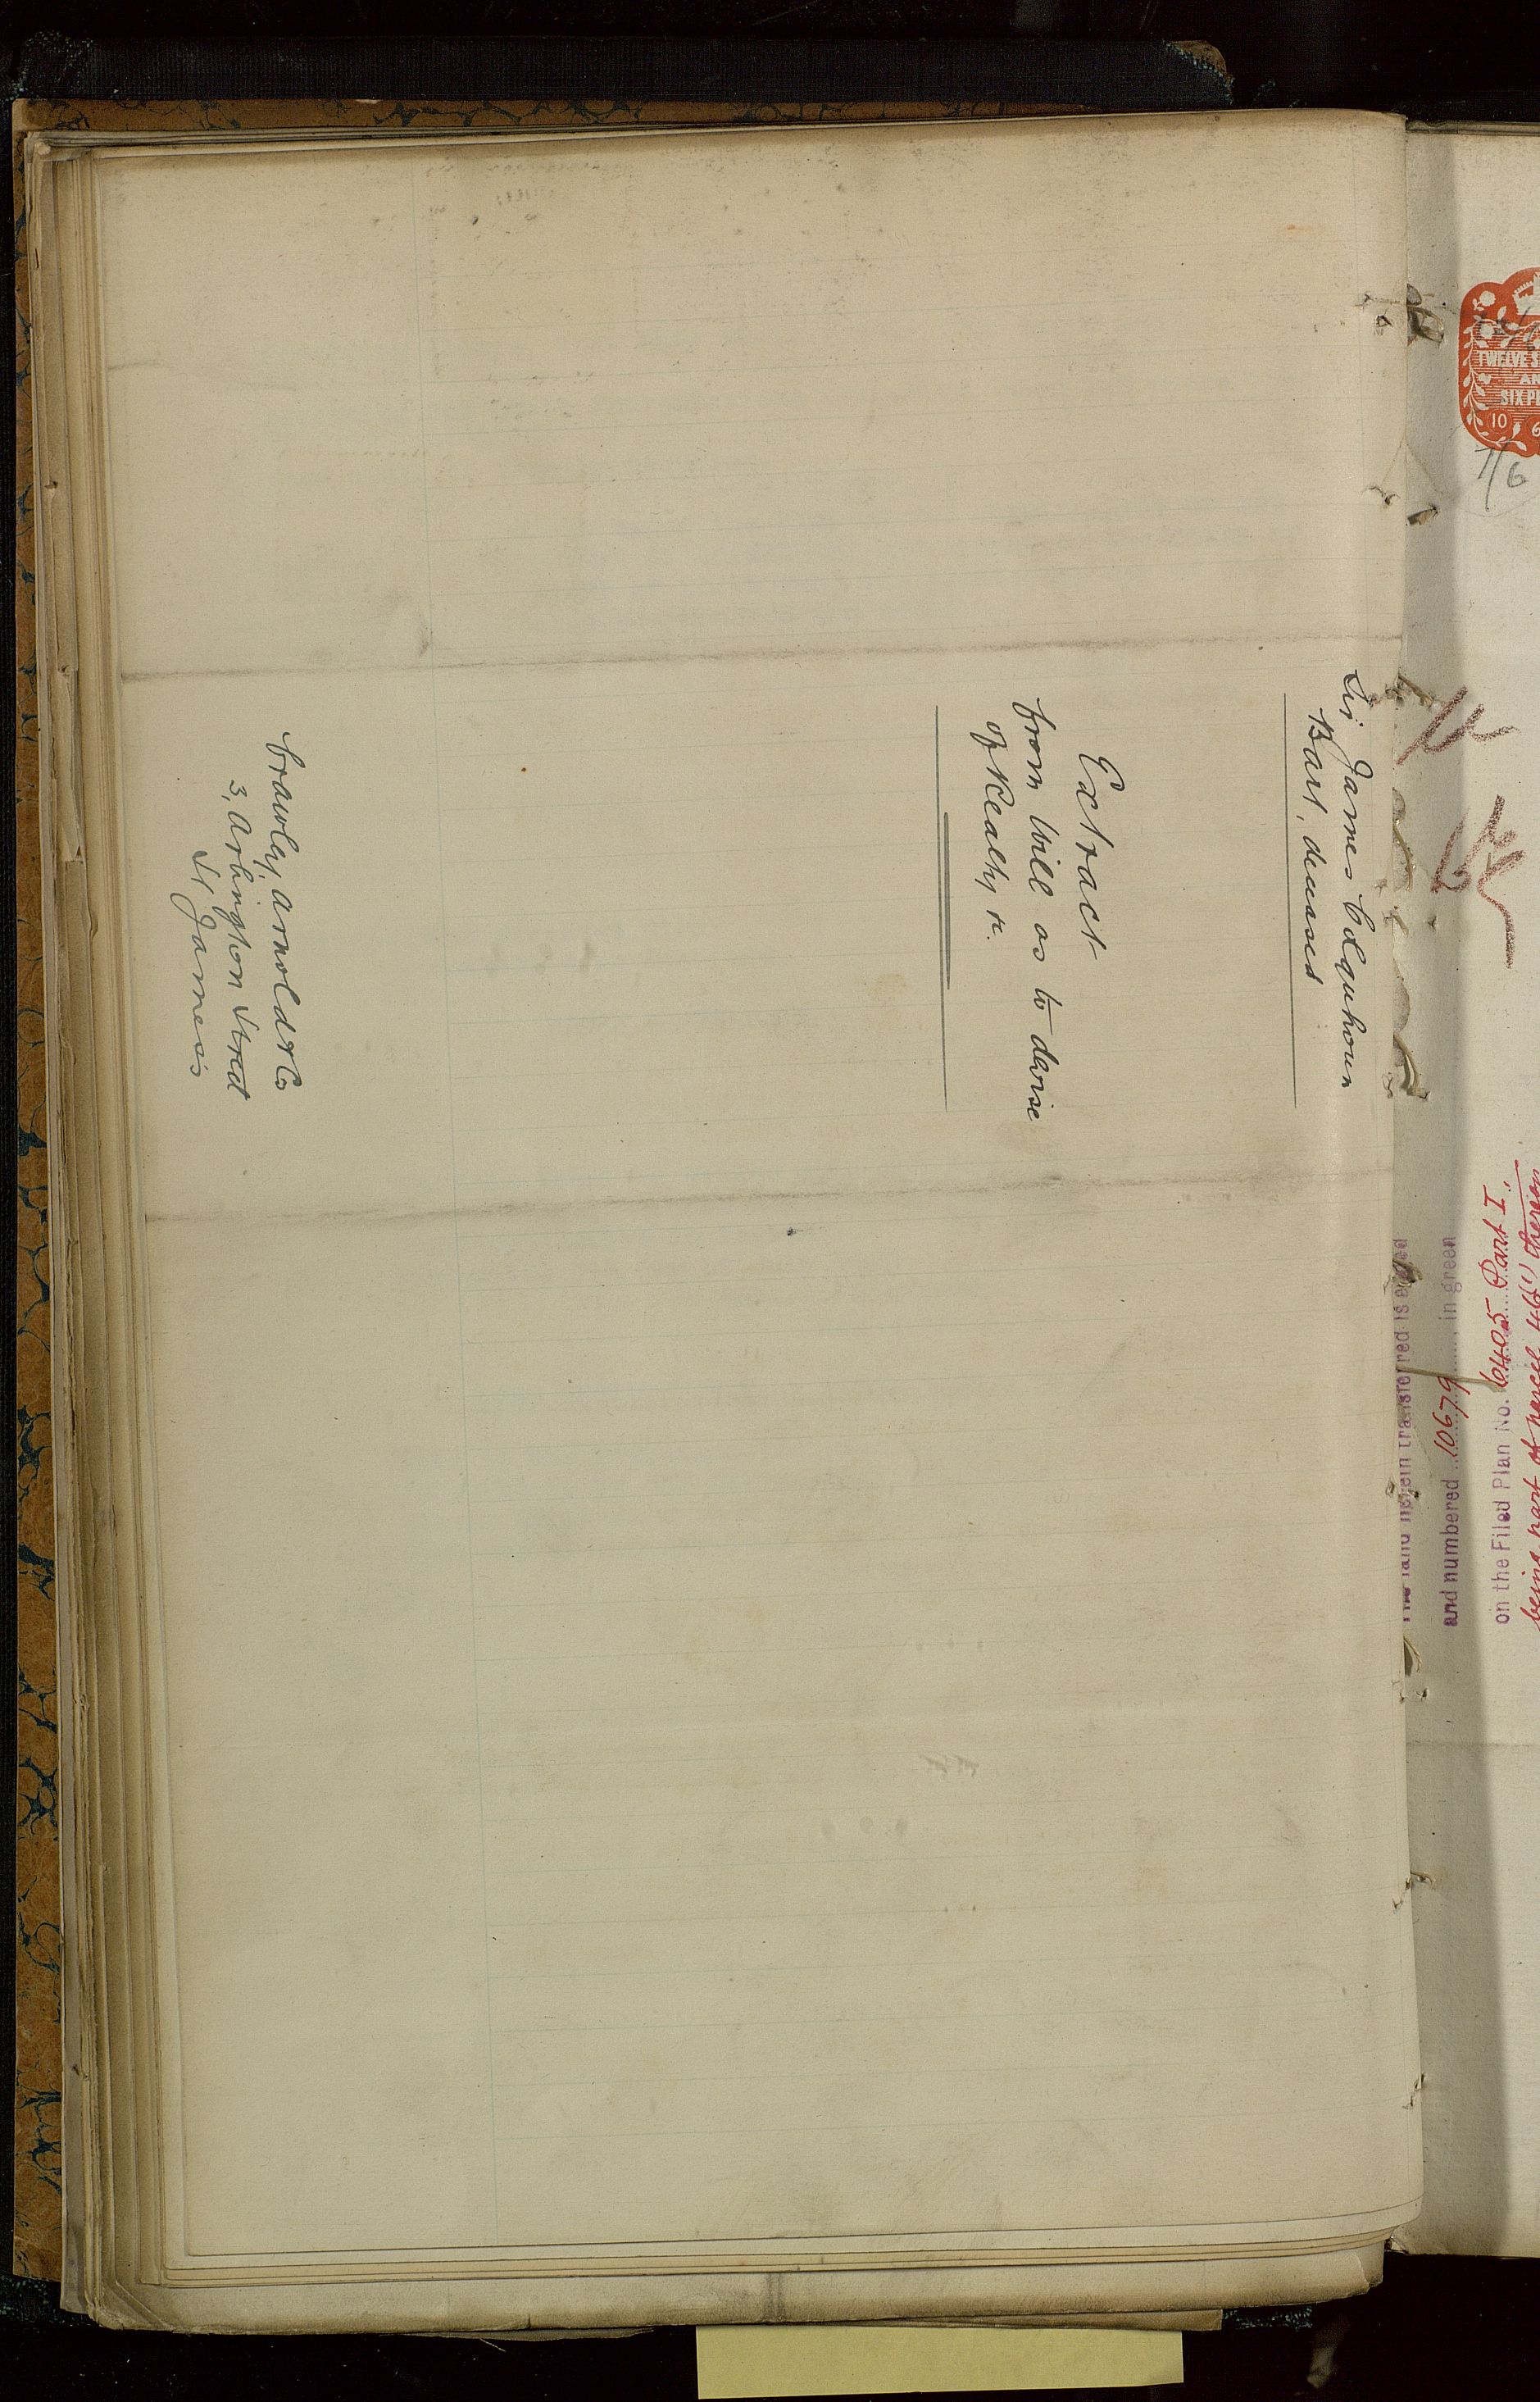 Sir James Colquhoun
Bart, deceased
Extract
from Will as to devise
of Realty &c.
Crawley, Arnold & Co
3, Arlington Street
St James's
TWELVE
SIX
10
7/6
The land herein transferred is edged
and numbered 10679 in green
on the Filed Plan No. 6405 Part I.,
being part of parcel thereon